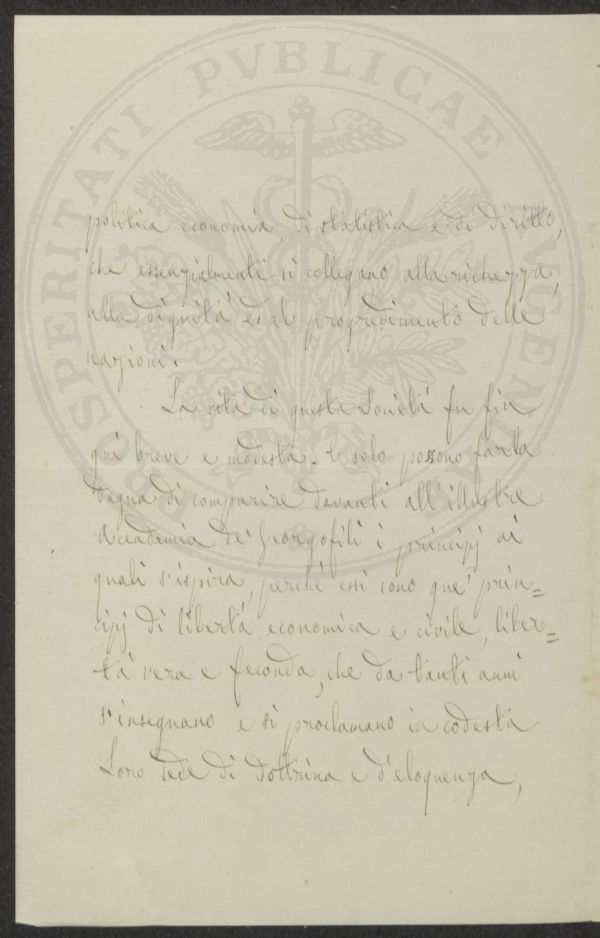 PROSPERITATI PVBLICAE AVGENDAE
politica economia, di statistica e di diritto,
che essenzialmente si collegano alla ricchezza,
alla dignità ed al progredimento delle
nazioni.
La vita di questa Società fu fin
quì breve e modesta. E solo possono farla
degna di comparire davanti all'illustre
Accademia de' Georgofili i principj ai
quali s'ispira, perchè essi sono que' prin=
cipj di libertà economica e civile, liber=
tà vera e feconda, che da tanti anni
s'insegnano e si proclamano in codesta
Loro sede di dottrina e d'eloquenza,